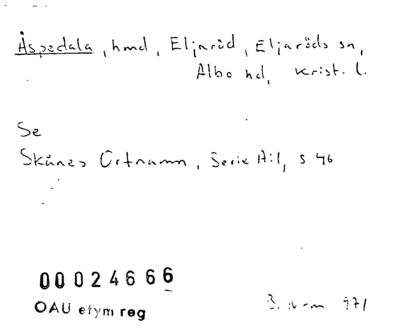 Åspedala, hmd, Eljaröd, Eljaröds sn,
Albo hd, Krist. l.
Se
Skånes Ortnamn, Serie A:1, s 46
00024666
OAU etym reg